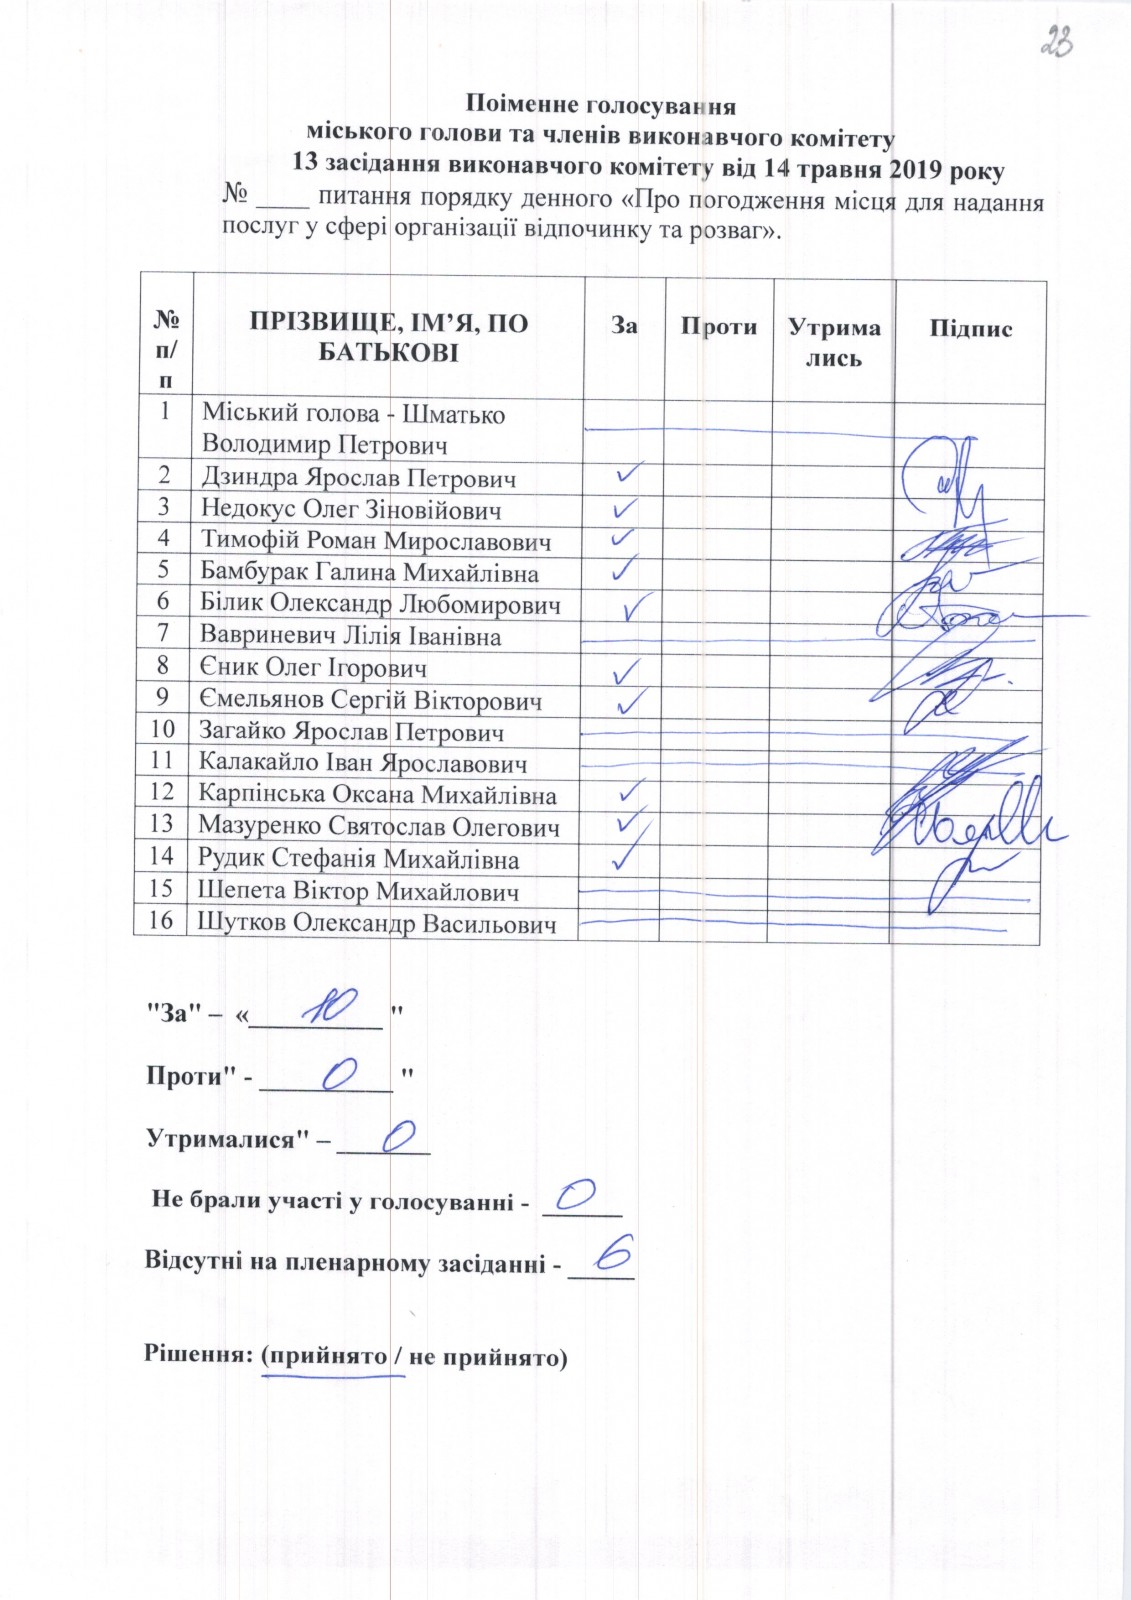 23
Поіменне голосування
міського голови та членів виконавчого комітету
13 засідання виконавчого комітету від 14 травня 2019 року
№ ____ питання порядку денного «Про погодження місця для надання
послуг у сфері організації відпочинку та розваг».
№ п/п ПРІЗВИЩЕ, ІМ’Я, ПО БАТЬКОВІ За Проти Утрима лись Підпис
1 Міський голова - Шматько
Володимир Петрович
2 Дзиндра Ярослав Петрович ✓
3 Недокус Олег Зіновійович ✓
4 Тимофій Роман Мирославович ✓
5 Бамбурак Галина Михайлівна ✓
6 Білик Олександр Любомирович ✓
7 Вавриневич Лілія Іванівна
8 Єник Олег Ігорович ✓
9 Ємельянов Сергій Вікторович ✓
10 Загайко Ярослав Петрович
11 Калакайло Іван Ярославович
12 Карпінська Оксана Михайлівна ✓
13 Мазуренко Святослав Олегович ✓
14 Рудик Стефанія Михайлівна ✓
15 Шепета Віктор Михайлович
16 Шутков Олександр Васильович
"За" – «__10__ "
Проти" - __0__ "
Утрималися" – __0__
Не брали участі у голосуванні - __0__
Відсутні на пленарному засіданні - __6__
Рішення: (прийнято / не прийнято)